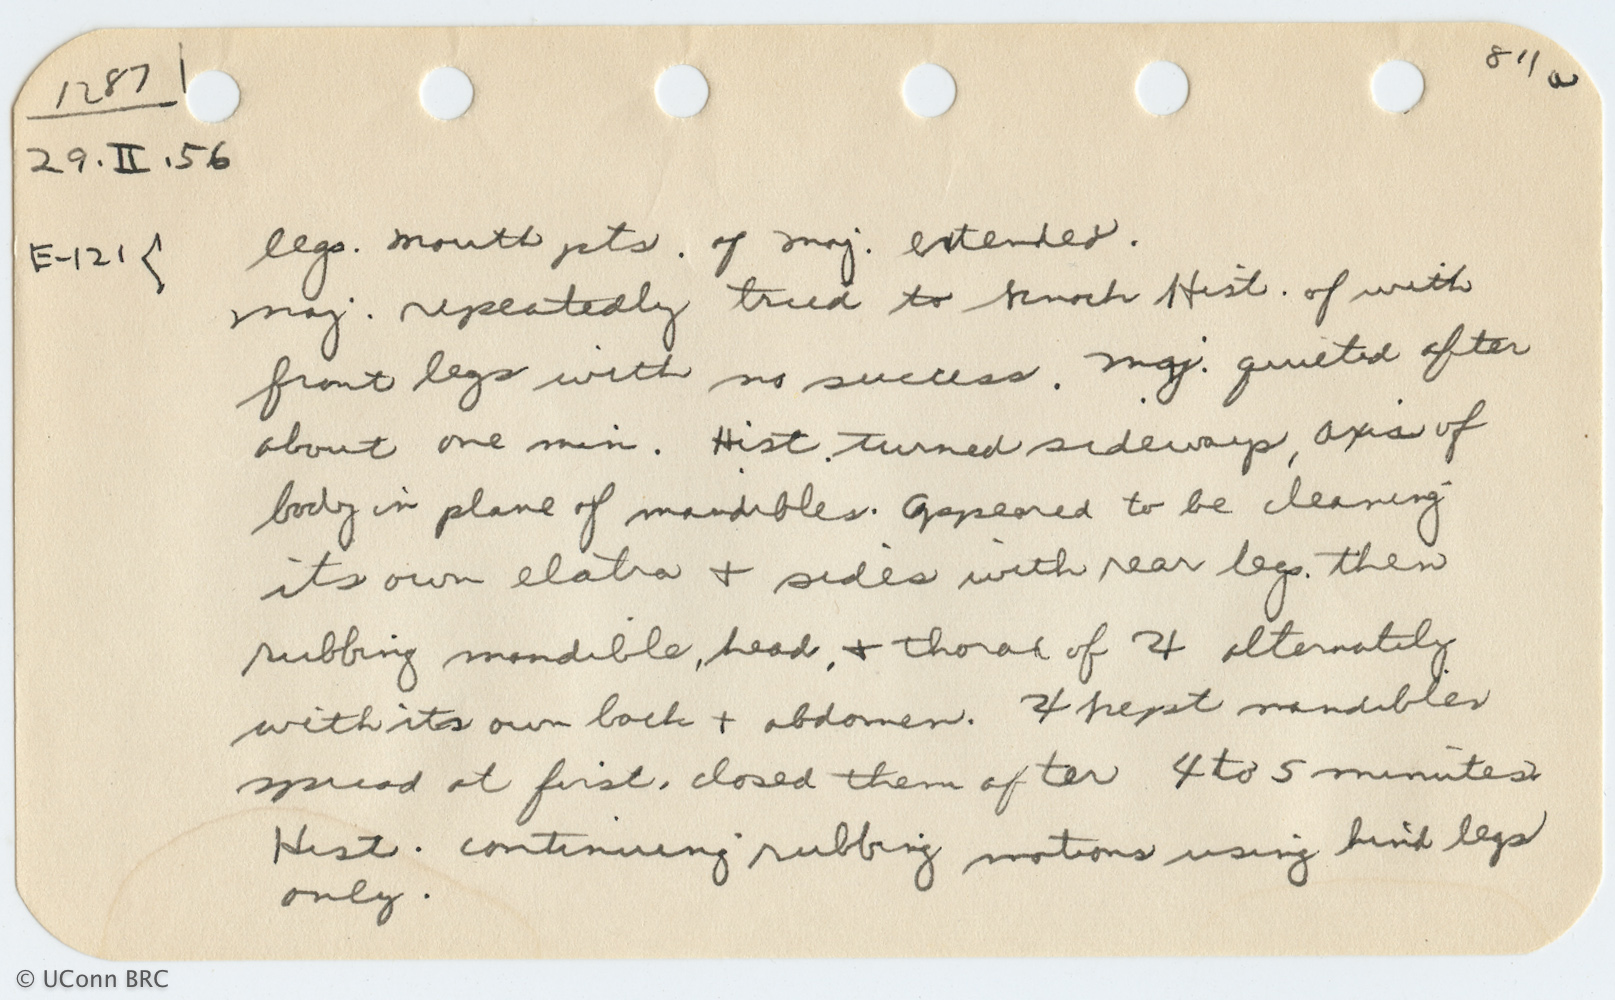 1287
811a
29.II.56
E-121 {
legs. Mouth pts. of maj. extended.
maj. repeatedly tried to knock Hist. of with
front legs with no success. Maj. quieted after
about one min. Hist. turned sideways, axis of
body in plane of mandibles. Appeared to be cleaning
its own elatra + sides with rear legs. then
rubbing mandible, head, + thorax of ♃ alternately
with its own back + abdomen. ♃ kept mandibles
spread at first. closed them after 4 to 5 minutes.
Hist. continuing rubbing motions using hind legs
only.
© UConn BRC